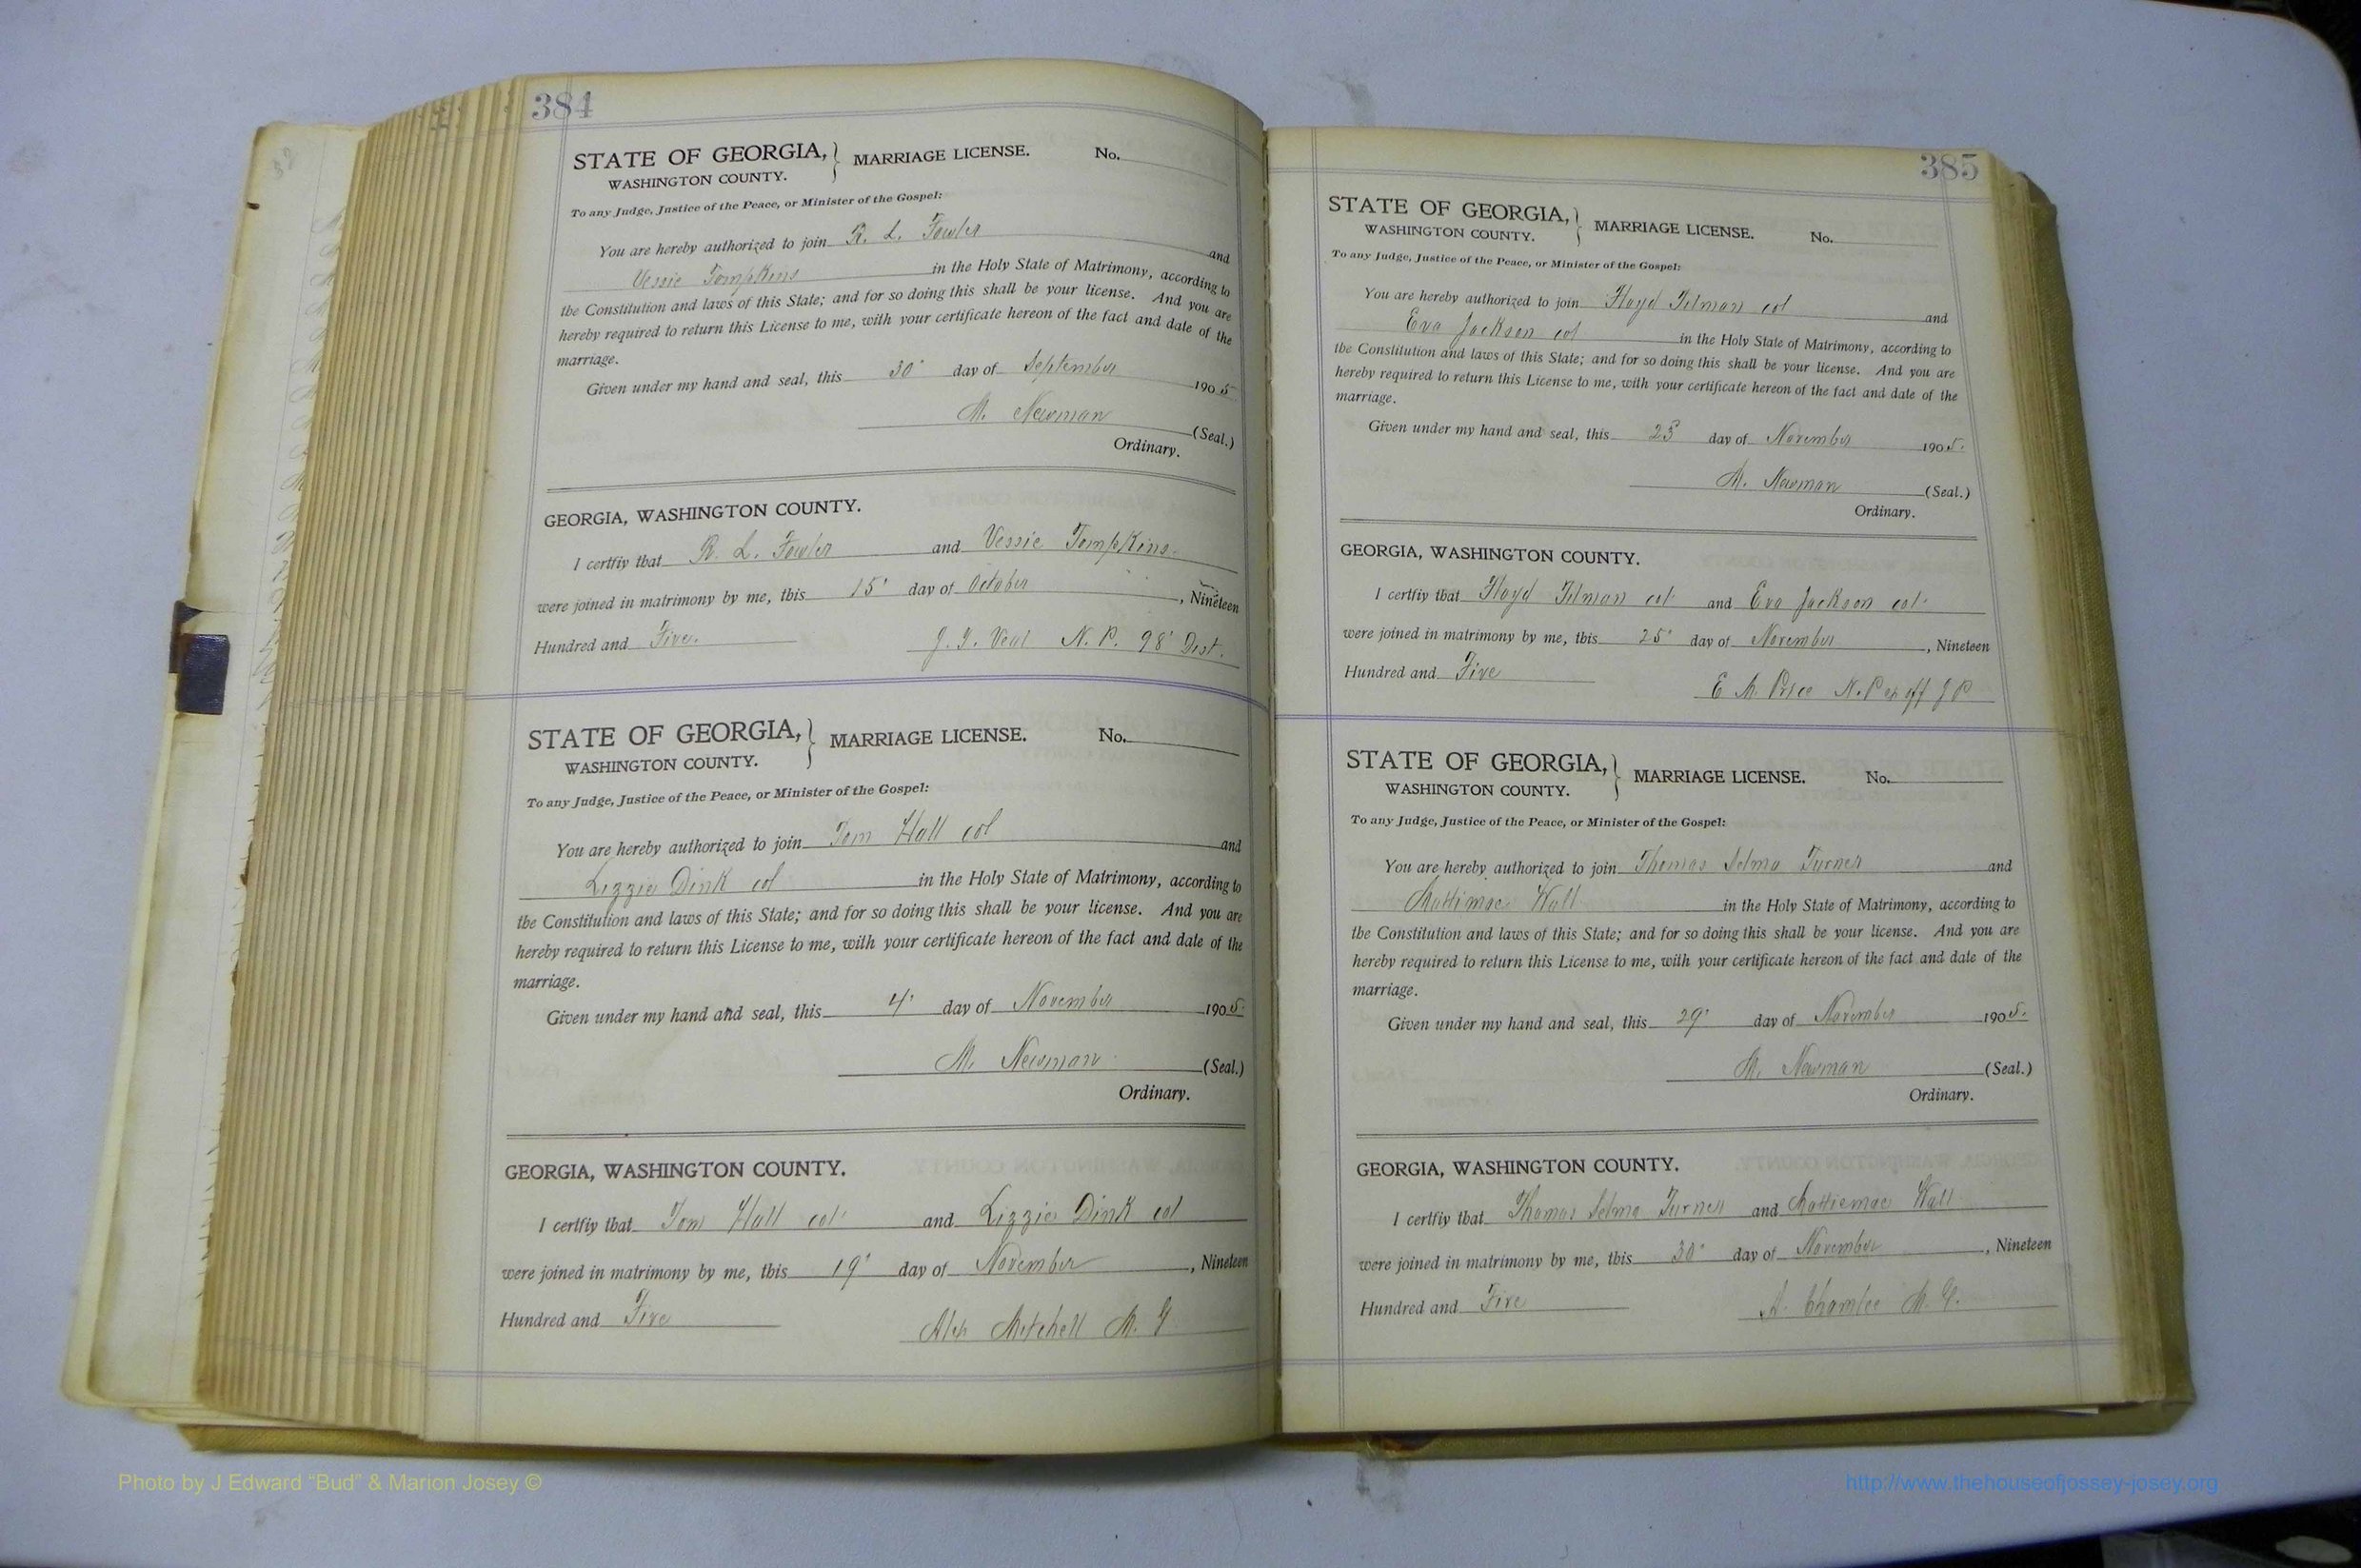 384
STATE OF GEORGIA, } MARRIAGE LICENSE. No.
WASHINGTON COUNTY.
To any Judge, Justice of the Peace, or Minister of the Gospel:
You are hereby authorized to join R. L. Fowler and
Vessie Tompkins in the Holy State of Matrimony, according to
the Constitution and laws of this State; and for so doing this shall be your license. And you are
hereby required to return this License to me, with your certificate hereon of the fact and date of the
marriage.
Given under my hand and seal, this 30" day of September 1905
M. Newman (Seal.)
Ordinary.
GEORGIA, WASHINGTON COUNTY.
I certfiy that R. L. Fowler and Vessie Tompkins.
were joined in matrimony by me, this 15" day of October, Nineteen
Hundred and Five. J. J. Veal N. P. 98" Dist.
STATE OF GEORGIA, } MARRIAGE LICENSE. No.
WASHINGTON COUNTY.
To any Judge, Justice of the Peace, or Minister of the Gospel:
You are hereby authorized to join Tom Hall col and
Lizzie Dink col in the Holy State of Matrimony, according to
the Constitution and laws of this State; and for so doing this shall be your license. And you are
hereby required to return this License to me, with your certificate hereon of the fact and date of the
marriage.
Given under my hand and seal, this 4" day of November 1905
M. Newman (Seal.)
Ordinary.
GEORGIA, WASHINGTON COUNTY.
I certfiy that Tom Hall col and Lizzie Dink col
were joined in matrimony by me, this 19" day of November, Nineteen
Hundred and Five Alex Mitchell M. G
385
STATE OF GEORGIA, } MARRIAGE LICENSE. No.
WASHINGTON COUNTY.
To any Judge, Justice of the Peace, or Minister of the Gospel:
You are hereby authorized to join Floyd Tilman col and
Eva Jackson col in the Holy State of Matrimony, according to
the Constitution and laws of this State; and for so doing this shall be your license. And you are
hereby required to return this License to me, with your certificate hereon of the fact and date of the
marriage.
Given under my hand and seal, this day of November 1905.
M. Newman (Seal.)
Ordinary.
GEORGIA, WASHINGTON COUNTY.
I certfiy that Floyd Tilman col and Eva Jackson col
were joined in matrimony by me, this 25" day of November, Nineteen
Hundred and Five E M Price N. P ex off J P
STATE OF GEORGIA, } MARRIAGE LICENSE. No.
WASHINGTON COUNTY.
To any Judge, Justice of the Peace, or Minister of the Gospel:
You are hereby authorized to join Thomas Selma Turner and
Mattimae Wall in the Holy State of Matrimony, according to
the Constitution and laws of this State; and for so doing this shall be your license. And you are
hereby required to return this License to me, with your certificate hereon of the fact and date of the
marriage.
Given under my hand and seal, this 29" day of November 1905.
M. Newman (Seal.)
Ordinary.
GEORGIA, WASHINGTON COUNTY.
I certfiy that Thomas Selma Turner and Mattiemae Wall
were joined in matrimony by me, this 30" day of November, Nineteen
Hundred and Five A. Chamlee M. G.
Photo by J Edward “Bud” & Marion Josey ©
http://www.thehouseofjossey-josey.org